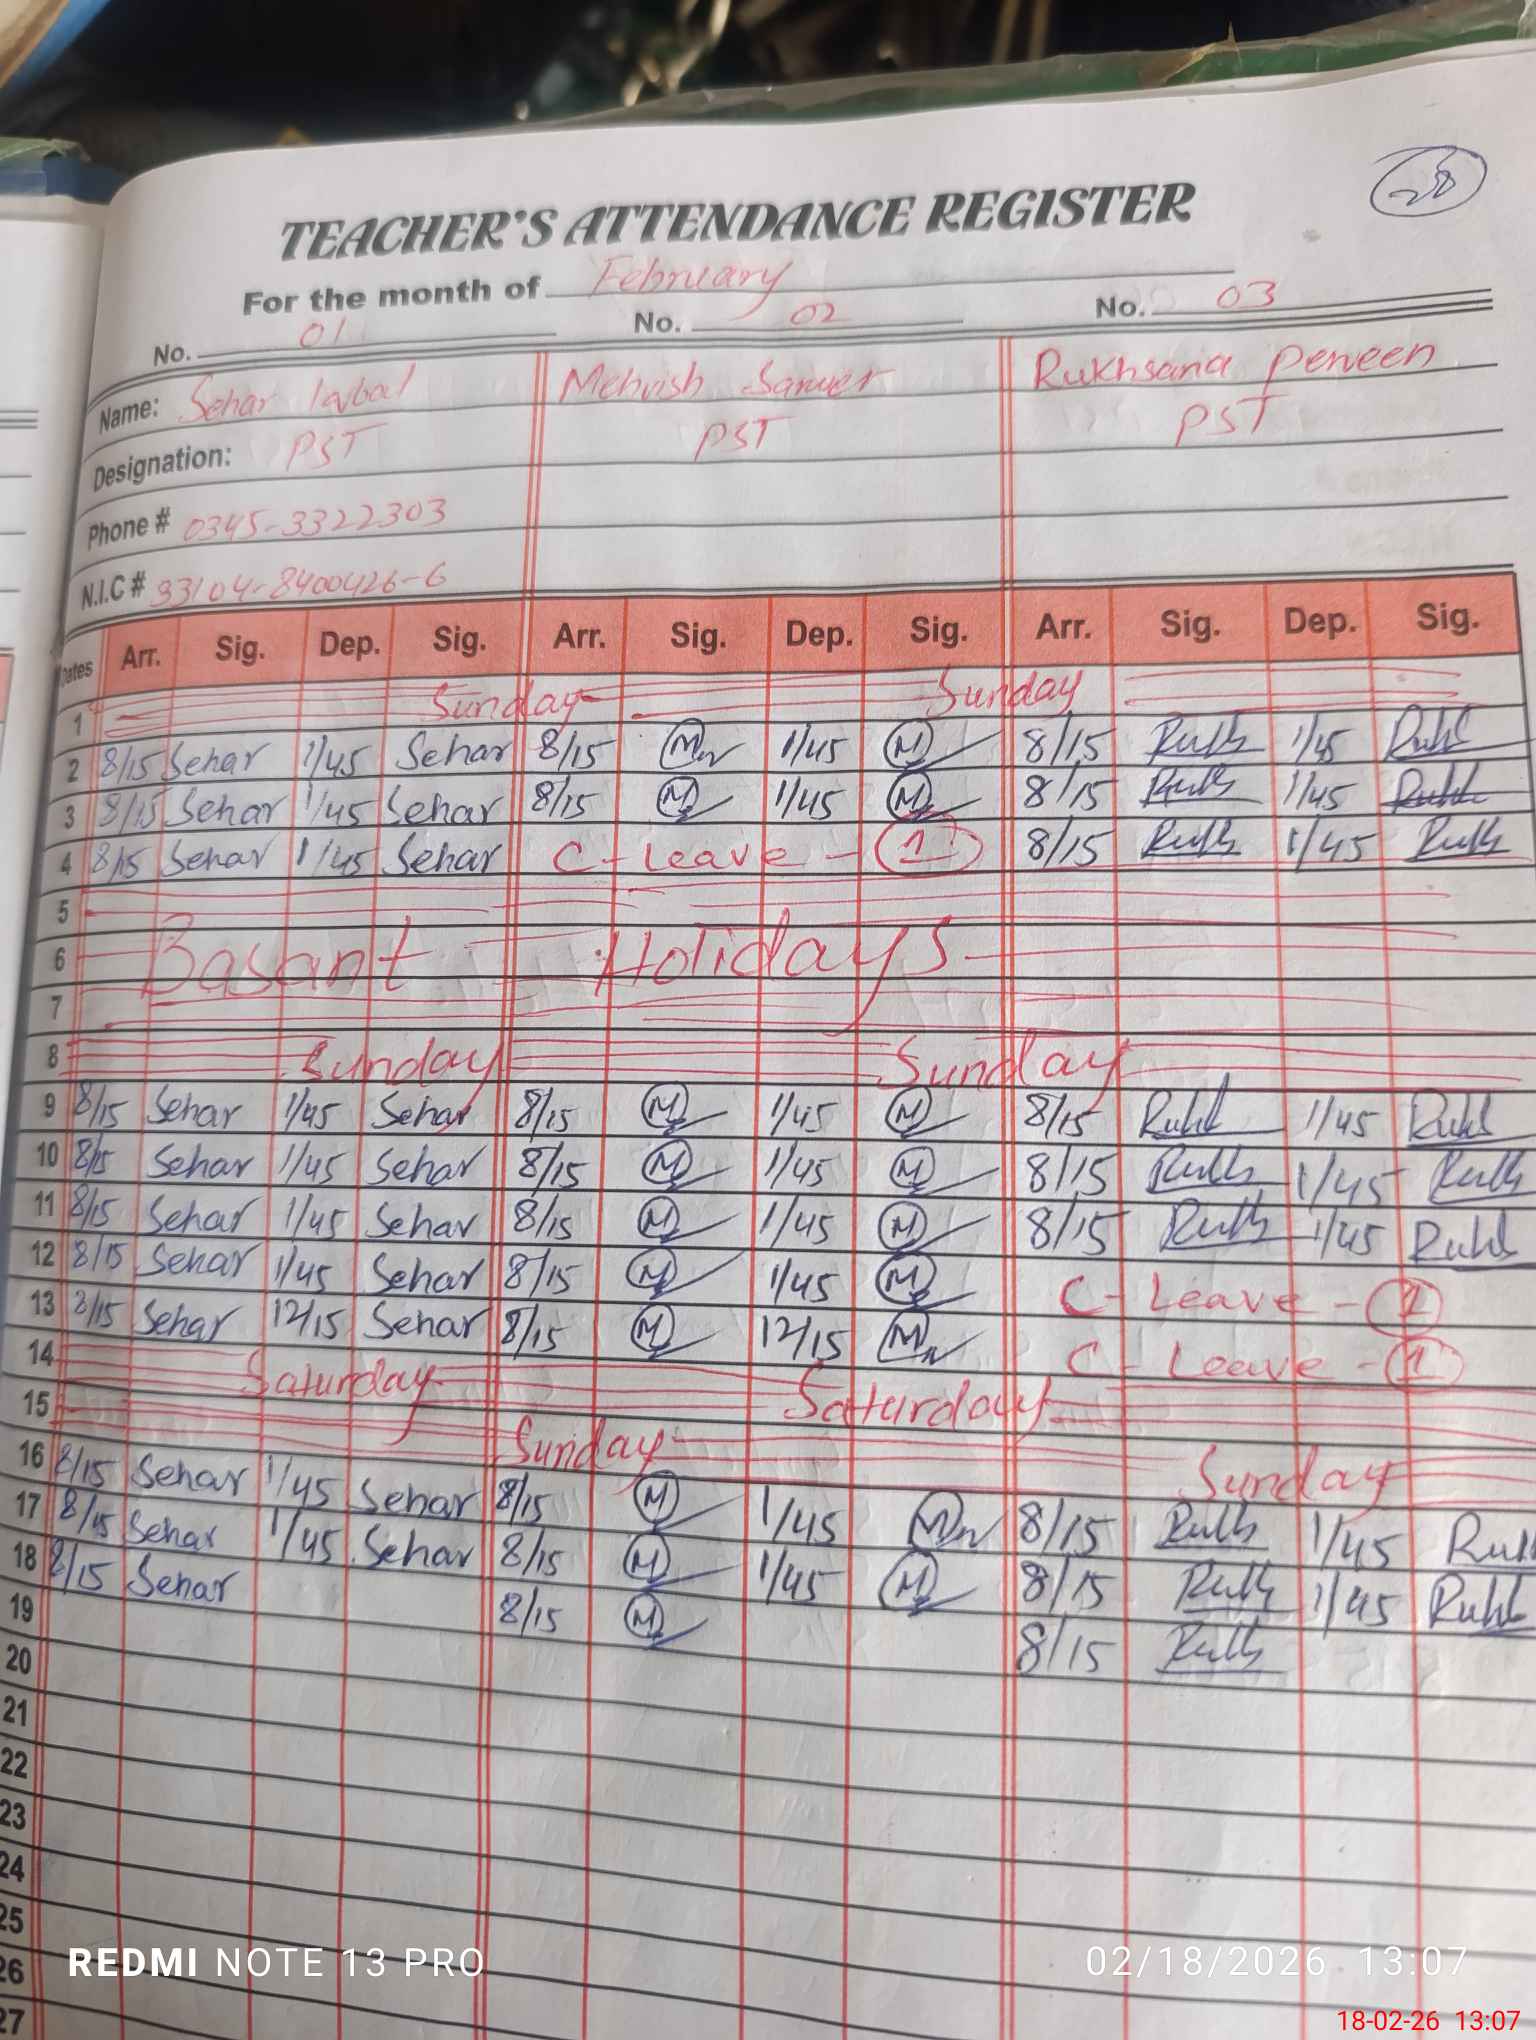 28
TEACHER'S ATTENDANCE REGISTER
For the month of February
No. 01 No. 02 No. 03
Name: Sehar Iqbal Mehvish Sarwer Rukhsana Perveen
Designation: PST PST PST
Phone # 0345-3322303
N.I.C # 33104-8400426-6
Dates Arr. Sig. Dep. Sig. Arr. Sig. Dep. Sig. Arr. Sig. Dep. Sig.
1 Sunday Sunday
2 8/15 Sehar 1/45 Sehar 8/15 M 1/45 M 8/15 Rukh 1/45 Rukh
3 8/15 Sehar 1/45 Sehar 8/15 M 1/45 M 8/15 Rukh 1/45 Rukh
4 8/15 Sehar 1/45 Sehar C-Leave-1 8/15 Rukh 1/45 Rukh
5
6 Basant Holidays
7
8 Sunday Sunday
9 8/15 Sehar 1/45 Sehar 8/15 M 1/45 M 8/15 Rukh 1/45 Rukh
10 8/15 Sehar 1/45 Sehar 8/15 M 1/45 M 8/15 Rukh 1/45 Rukh
11 8/15 Sehar 1/45 Sehar 8/15 M 1/45 M 8/15 Rukh 1/45 Rukh
12 8/15 Sehar 1/45 Sehar 8/15 M 1/45 M C-Leave-1
13 8/15 Sehar 12/15 Sehar 8/15 M 12/15 M C-Leave-1
14 Saturday Saturday
15 Sunday Sunday
16 8/15 Sehar 1/45 Sehar 8/15 M 1/45 M 8/15 Rukh 1/45 Rukh
17 8/15 Sehar 1/45 Sehar 8/15 M 1/45 M 8/15 Rukh 1/45 Rukh
18 8/15 Sehar 8/15 M 8/15 Rukh
19
20
21
22
23
24
25
26
27
REDMI NOTE 13 PRO 02/18/2026 13:07
18-02-26 13:07